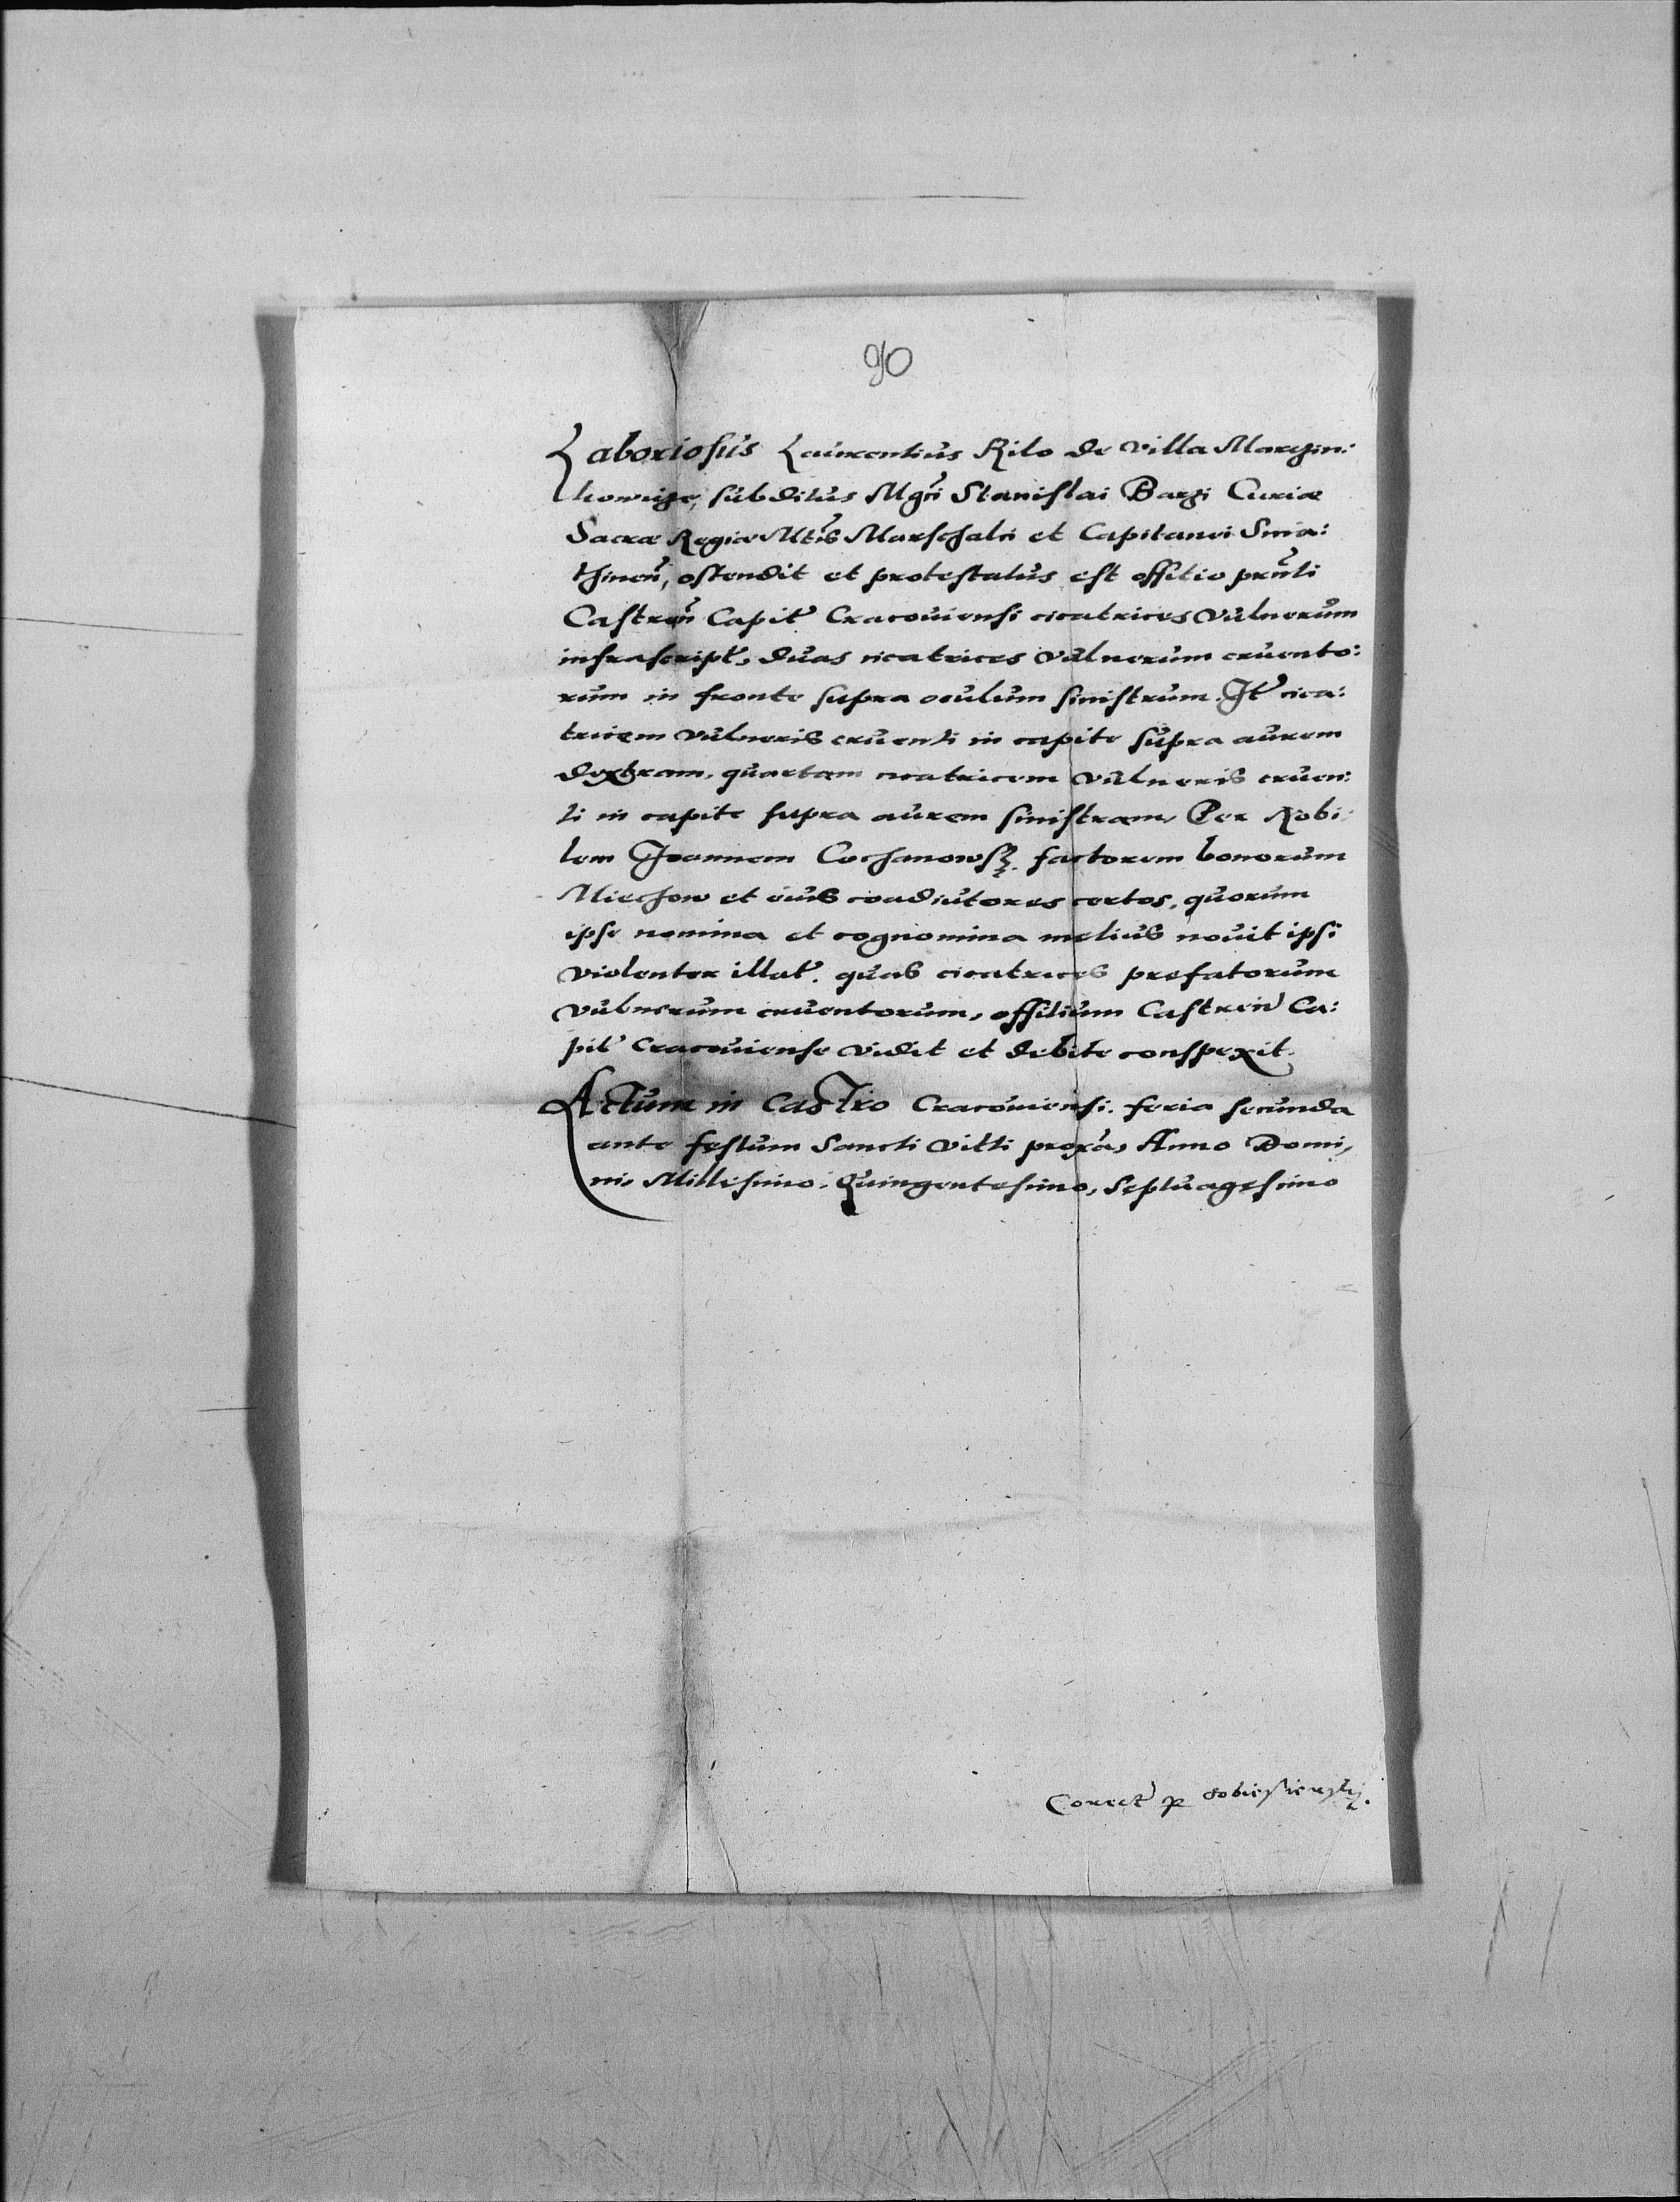 90
Laboriosus Laurentius Rilo de villa Marczin:
kowicze, subditus Mgci Stanislai Barzi Curiæ
Sacræ Regiæ Mtis Marschalci et Capitanei Snia:
thinen, ostendit et protestatus est offitio prnti
Castren Capit Cracoviensi cicatrices vulnerum
infrascript, duas cicatrices vulnerum cruento:
rum in fronte supra oculum sinistrum. It cica:
tricem vulneris cruenti in capite supra aurem
dextram, quartam cicatricem vulneris cruen:
ti in capite supra aurem sinistram, Per Nobi:
lem Joannem Cochanowsk factorem bonorum
Miechow et eius coadiutores certos, quorum
ipse nomina et cognomina melius novit ipsi
violenter illat. quas cicatrices prefatorum
vulnerum cruentorum, offitium Castren Ca:
pit Cracoviense vidit et debite conspexit.
Actum in Castro Cracoviensi. feria secunda
ante festum Sancti Vitti proxa, Anno Domi,
ni, Millesimo. Quingentesimo, Septuagesimo
Corect p